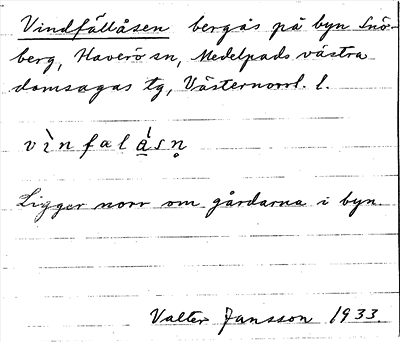 Vindfällåsen bergås på byn Snö-
berg, Haverö sn, Medelpads västra
domsagas tg, Västernorrl. l.
v ì n f a l å̀ s n̥
Ligger norr om gårdarna i byn.
Valter Jansson 1933.